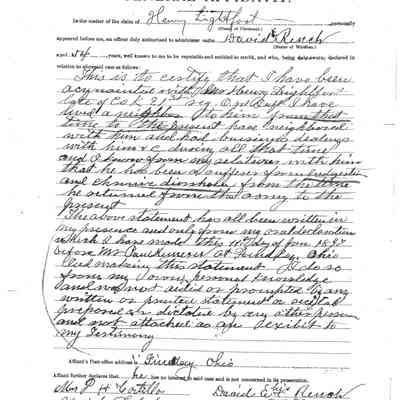 GENERAL AFFIDAVIT.
In the matter of the claim of Henry Lightfoot
(Name of Claimant.)
personally
appeared before me, an officer duly authorized to administer oaths David E Rench
(Name of Witness.)
aged 54 years, well known to me to be reputable and entitled to credit, and who, being duly sworn, declared in
relation to aforesaid case as follows:
This is to certify that I have been
acquainted with Henry Lightfoot
late of Co K 21st reg O I have
lived a neighbor to him from that
time to the present have neighbored
with him and had business dealings
with him &c during all that time
and I know from my relations with him
that he has been a sufferer from
and chronic diarrhea from the time
he returned from the army to the
present
The above statement has all been written in
my presence and only from my oral declaration
which I have made this 11th day of Jan 1897
before Mr at Ohio
and making this statement I do so
from my own personal knowledge
and was not aided or prompted by any
written or printed statement or recital
prepared or dictated by any other person
and not attached as an exibit to
my Testimony
Affiant's Post-office address is Findlay Ohio
Affiant further declares that he has no interest in said case and is not concerned in its prosecution.
Mrs P H Costillo David E his Rench